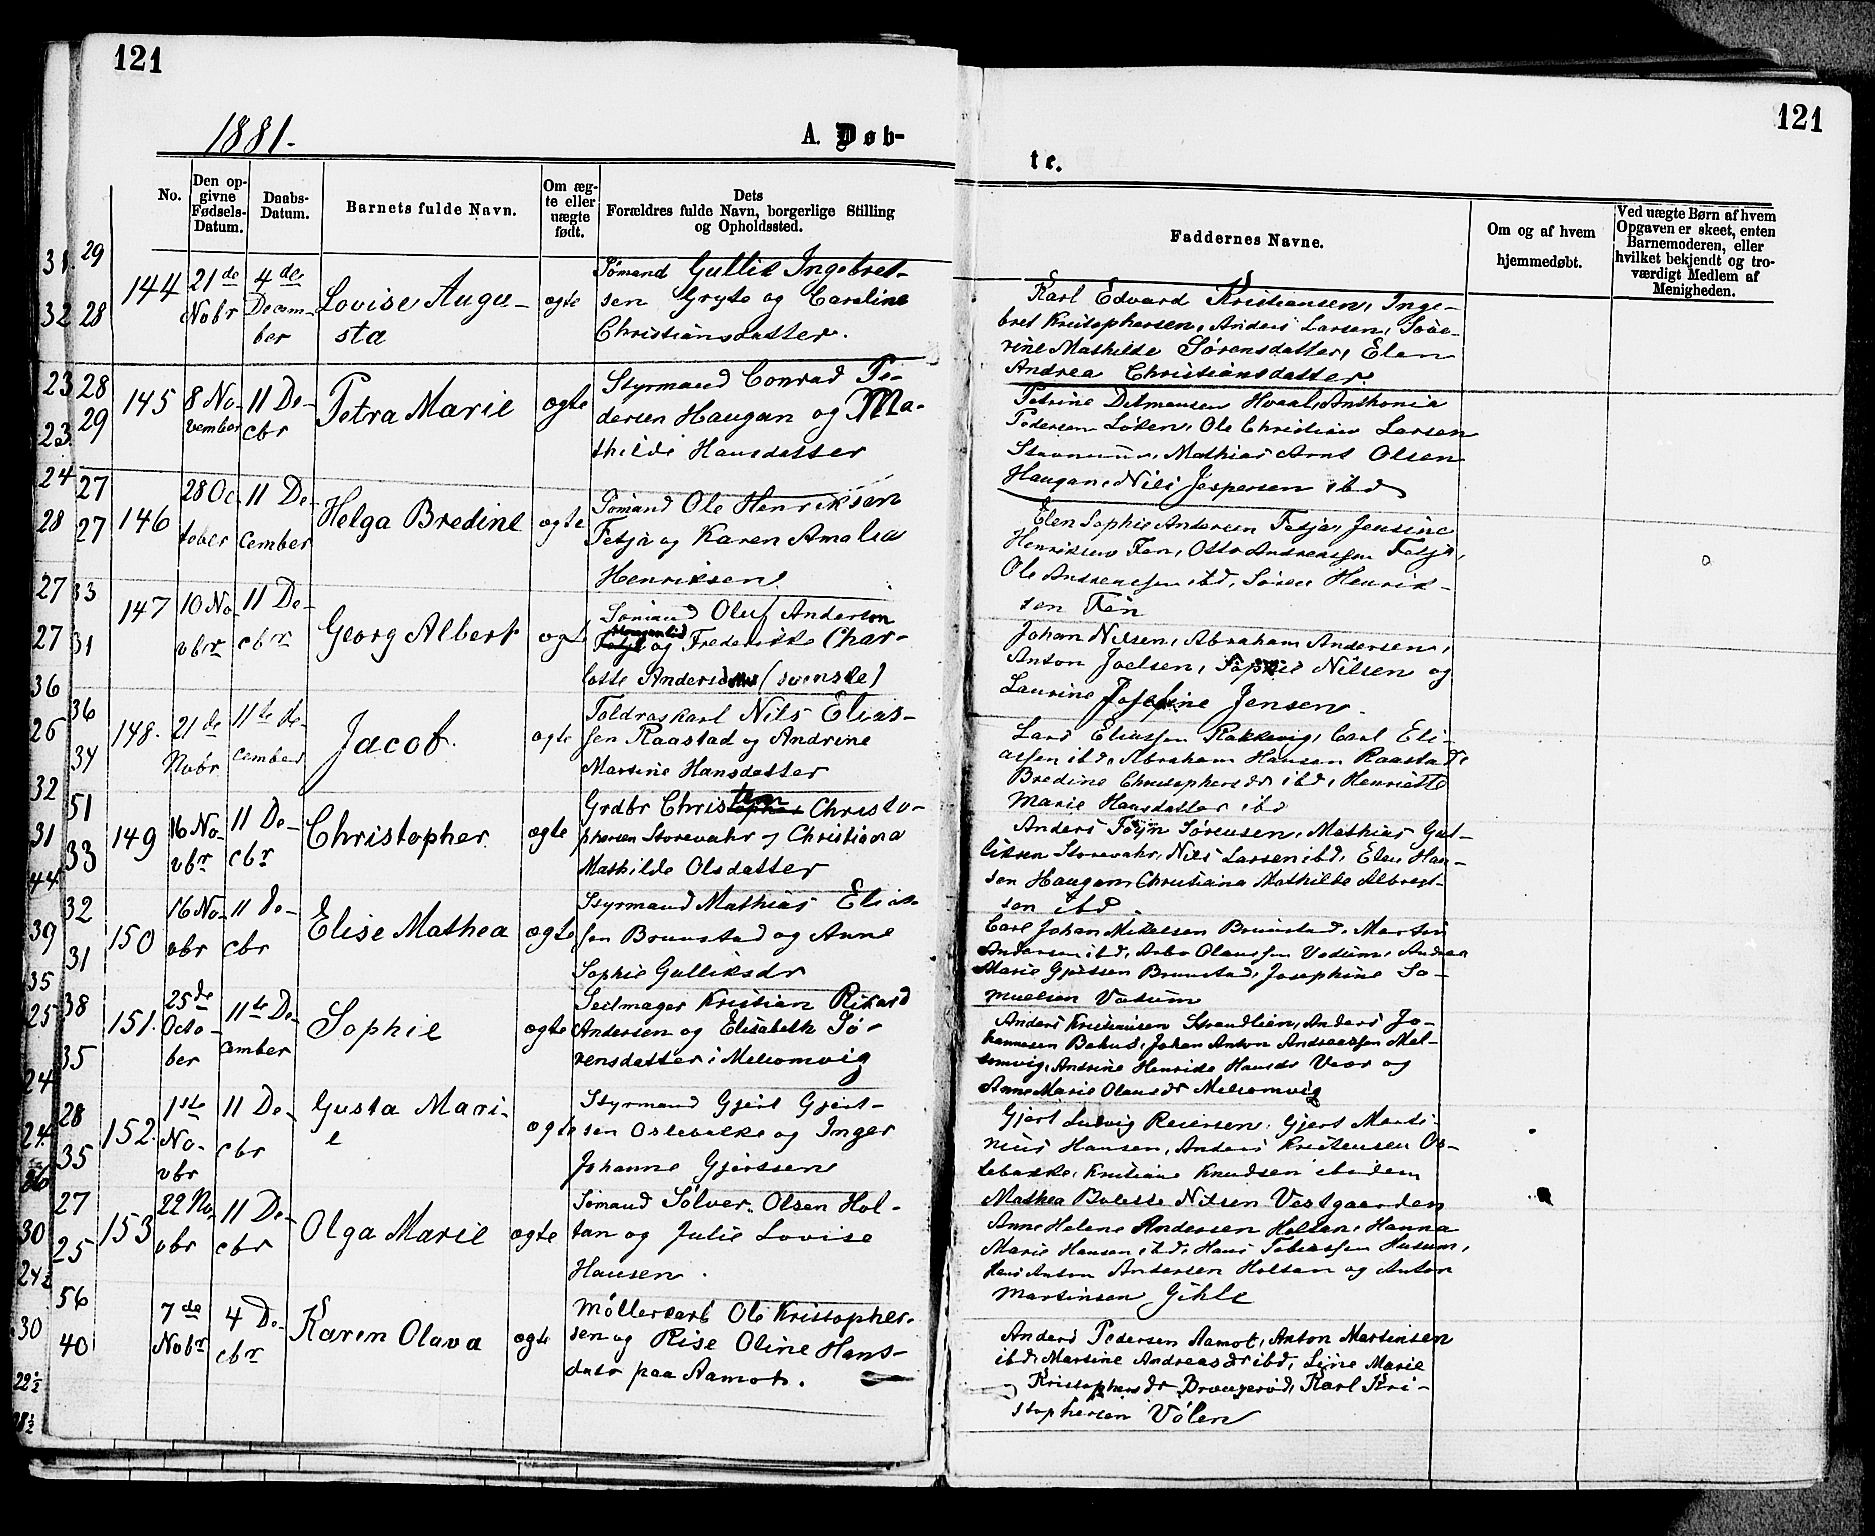 121
121
1881.
A. Døb-
te.
No.
Den op-
givne
Fødsels-
Datum.
Daabs-
Datum.
Barnets fulde Navn.
Om æg-
te eller
uægte
født.
Dets
Forældres fulde Navn, borgerlige Stilling
og Opholdssted.
Faddernes Navne.
Om og af hvem
hjemmedøbt.
Ved uægte Børn af hvem
Opgaven er skeet, enten
Barnemoderen, eller
hvilket bekjendt og tro-
værdigt Medlem af
Menigheden.
29
28
144
21de
Nobr
4de
Decem-
ber
Lovise Augu-
sta
ægte
Sømand Gullik Ingebret-
sen Gryte og Caroline
Christiansdatter.
Karl Edvard Kristiansen, Inge-
bret Kristophersen, Anders Larsen, Seve-
rine Mathilde Sørensdatter, Elen
Andrea Christiansdatter.
28
29
145
8 No-
vember
11 De-
cbr
Petra Marie
ægte
Styrmand Conrad Pe-
dersen Haugan og Ma-
thilde Hansdatter
Petrine Ditmansen Hvaal, Anthonia
Pedersen Løken, Ole Christian Larsen
Mathias Arnt Olsen
Haugan, Nils Jespersen ibd
27
27
146
28 Oc-
tober
11 De-
cember
Helga Bredine
ægte
Sømand Ole Henriksen
Fetja og Karen Amalia
Henriksen
Elen Sophie Andersen Fetja, Jensine
Henriksen Fen, Otto Andreassen Fetja,
Ole Andreassen ibd, Søren Henrik-
sen Fen
33
31
147
10 No-
vbr
11 De-
cbr
Georg Albert
ægte
Sømand Oluf Anderson
og Frederikke Char-
lotte Anderson (svenske)
Johan Nilsen, Abraham Andersen,
Anton Joelsen, Sophie Nilsen og
Laurine Josefine Jensen.
36
34
148.
21de
Nobr
11te De-
cember
Jacob.
ægte
Toldroskarl Nils Elias-
sen Raastad og Andrine
Martine Hansdatter
Lars Eliassen Rakkevig, Carl Eli-
assen ibd, Abraham Hansen Raastad,
Bredine Christophersdr ibd, Henriette
Marie Hansdatter ibd
51
33
149
16 No-
vbr
11 De-
cbr
Christopher
ægte
Grdbr Christen Christo-
phersen Storevahr og Christiana
Mathilde Olsdatter
Anders Føyn Sørensen, Mathias Gul-
liksen Storevahr, Nils Larsen ibd, Elen Han-
sen Haugan, Christiana Mathilde Albregt-
sen ibd.
32
31
150
16 No-
vbr
11 De-
cbr
Elise Mathea
ægte
Styrmand Mathias Elias-
sen Brunstad og Anne
Sophie Gulliksdr
Carl Johan Mikelsen Brunstad, Martin
Andersen ibd, Arbo Olaussen Vadum, Andrea
Marie Gjertsen Brunstad, Josephine Sa-
muelsen Vadum
38
35
151.
25de
Octo-
ber
11te De-
cember
Sophie
ægte
Seilmager Kristian Rikard
Andersen og Elisabeth Sø-
rensdatter i Melsomvig
Anders Kristiansen Strandlien, Anders Jo-
hannesen Bakus, Johan Anton Andreassen Mel-
somvig, Andrine Henrikke Hansdr Vear og
Anne Marie Olausdr Melsomvig
28
35
152.
1ste
No-
vbr
11 De-
cbr
Gusta Mari-
e
ægte
Styrmand Gjert Gjert-
sen Oslebakke og Inger
Johanne Gjertsen
Gjert Ludvig Reiersen, Gjert Marti-
nius Hansen, Anders Kristensen Os-
lebakke, Kristian Knudsen ibidem
Mathea Bolette Nilsen Vestgaarden
27
25
153
22 No-
vbr
11 De-
cbr
Olga Marie
ægte
Sømand Sølver Olsen Hol-
tan og Julie Lovise
Hansen.
Anne Helene Andersen Holtan, Hanna
Marie Hansen ibd, Hans Tobiassen Husum,
Hans Anton Andersen Holtan og Anton
Martinsen Gihle
56
40
7de
Nobr
4 De-
cbr
Karen Olava
ægte
Møllerkarl Ole Kristopher-
sen og Rise Oline Hans-
datr paa Aamot.
Anders Pedersen Aamot, Anton Martinsen
ibd, Martine Andreasdr ibd, Line Marie
Kristophersdr Brængerød, Karl Kri-
stophersen Vølen